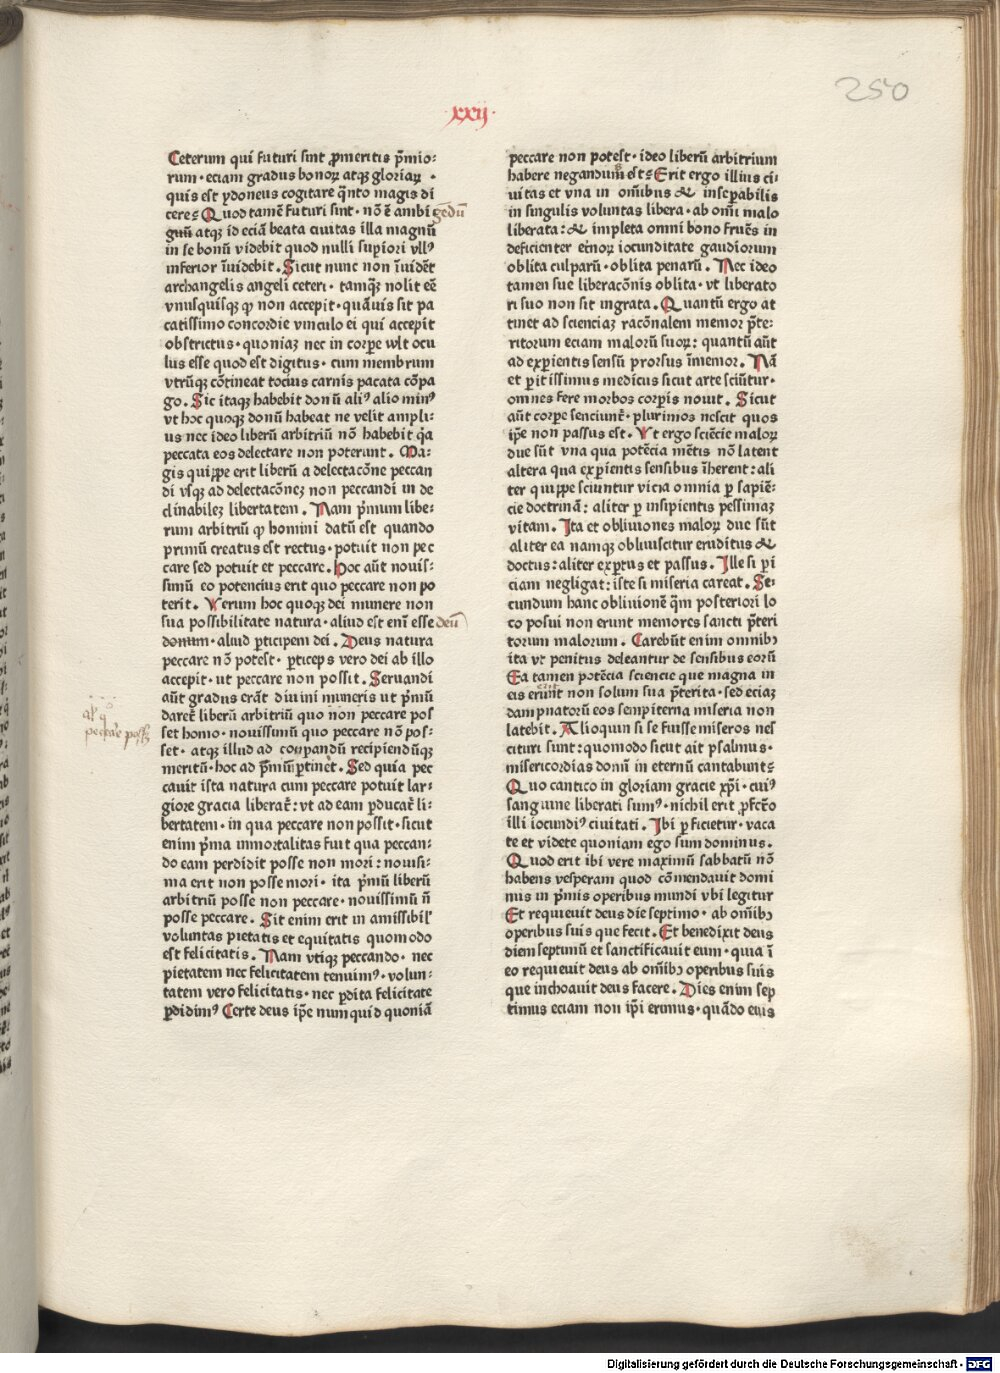 250
·xxij·
Ceterum qui futuri sint ꝓmeritis p̄mio⸗
rum · eciam gradus bonoꝝ atqꝫ gloriaꝝ ·
quis est ydoneus cogitare q̄nto magis di
cere⸗ Quod tamē futuri sint · nō ē ambi gēdū
guū atqꝫ id eciā beata ciuitas illa magnū
in se bonū videbit quod nulli suꝑiori vllꝰ
inferior īuidebit. Sicut nunc non īuidēt
archangelis angeli ceteri · tamqꝫ nolit eē
vnusquisqꝫ ꝙ non accepit · quāuis sit pa
catissimo concordie vinculo ei qui accepit
obstrictus · quoniaꝫ nec in corꝑe vult ocu
lus esse quod est digitus · cum membrum
vtrūqꝫ cōtineat tocius carnis pacata cōpa
go. Sic itaqꝫ habebit donū aliꝰ alio minꝰ
vt hoc quoqꝫ donū habeat ne velit ampli⸗
us nec ideo liberū arbitriū nō habebit q̄a
peccata eos delectare non poterunt. Ma⸗
gis quippe erit liberū a delectacōne peccan
di vsqꝫ ad delectacōneꝫ non peccandi in de
clinabileꝫ libertatem. Nam p̄mum libe⸗
rum arbitriū ꝙ homini datū est quando
primū creatus est rectus · potuit non pec
care sed potuit et peccare. hoc aūt nouis⸗
simū eo potencius erit quo peccare non po
terit. Verum hoc quoqꝫ dei munere non
sua possibilitate natura · aliud est enī esse deū
donum · aliud ꝑticipem dei. Deus natura
peccare nō potest · ꝑticeps vero dei ab illo
accepit · ut peccare non possit. Seruandi
aūt gradus erāt diuini muneris ut p̄mū
daret̄ liberū arbitriū quo non peccare pos
set homo · nouissimū quo peccare nō pos⸗
peccare possꝫ
set · atqꝫ illud ad conpandū recipiendūqꝫ
meritū · hoc ad p̄miū ꝑtinet. Sed quia pec
cauit ista natura cum peccare potuit lar⸗
giore gracia liberat̄: vt ad eam ꝑducat̄ li⸗
bertatem · in qua peccare non possit · sicut
enim p̄ma inmortalitas fuit qua peccan⸗
do eam perdidit posse non mori: nouissi⸗
ma erit non posse mori · ita p̄mū liberū
arbitriū posse non peccare · nouissimū ñ
posse peccare. Sit enim erit in amissibil'
voluntas pietatis et equitatis quomodo
est felicitatis. Nam vtiqꝫ peccando · nec
pietatem nec felicitatem tenuimꝰ · volun⸗
tatem vero felicitatis · nec ꝑdita felicitate
ꝑdidimꝰ Certe deus ip̄e numquid quoniā
peccare non potest · ideo liberū arbitrium
habere negandum est⸗ Erit ergo illius ci⸗
uitas et vna in om̄ibus & insepabilis
in singulis voluntas libera · ab om̄i malo
liberata: & impleta omni bono fruēs in
deficienter et̄noꝝ iocunditate gaudiorum
oblita culparū · oblita penarū. Nec ideo
tamen sue liberacōnis oblita · vt liberato
ri suo non sit ingrata. Quantū ergo at
tinet ad scienciaꝫ racōnalem memor p̄te⸗
ritorum eciam malorū suoꝝ: quantū aūt
ad exꝑientis sensū prorsus īmemor. Nā
et ꝑitissimus medicus sicut arte sciūtur ·
omnes fere morbos corꝑis nouit. Sicut
aūt corꝑe senciunt̄ · plurimos nescit quos
ip̄e non passus est. Vt ergo sciēcie maloꝝ
due sūt vna qua potēcia mētis nō latent
altera qua exꝑientis sensibus īherent: ali
ter quippe sciuntur vicia omnia ꝑ sapiē⸗
cie doctrinā: aliter ꝑ insipientis pessimaꝫ
vitam. Ita et obliuiones maloꝝ due sūt
aliter ea namqꝫ obliuiscitur eruditus &
doctus: aliter exꝑtus et passus. Ille si ꝑi
ciam negligat: iste si miseria careat. Se⸗
cundum hanc obliuionē q̄m posteriori lo
co posui non erunt memores sancti p̄teri
torum malorum. Carebūt enim omnibꝫ
ita vt penitus deleantur de sensibus eorū
Ea tamen potēcia sciencie que magna in
eis erunt non solum sua p̄terita · sed eciaꝫ
dampnatorū eos sempiterna miseria non
latebit. Alioquin si se fuisse miseros nes
cituri sunt: quomodo sicut ait psalmus ·
misericordias domī in eternū cantabunt⸗
Quo cantico in gloriam gracie xp̄i · cuiꝰ
sanguine liberati sumꝰ · nichil erit ꝓfcēo
illi iocundiꝰ ciuitati. Ibi ꝑficietur · vaca
te et videte quoniam ego sum dominus.
Quod erit ibi vere maximū sabbatū nō
habens vesperam quod cōmendauit domi
nus in p̄mis operibus mundi vbi legitur
Et requieuit deus die septimo · ab om̄ibꝫ
operibus suis que fecit. Et benedixit deus
diem septimū et sanctificauit eum · quia ī
eo requieuit deus ab om̄ibꝫ operibus suis
que inchoauit deus facere. Dies enim sep
timus eciam non ip̄i erimus · quādo eius
Digitalisierung gefördert durch die Deutsche Forschungsgemeinschaft - DFG